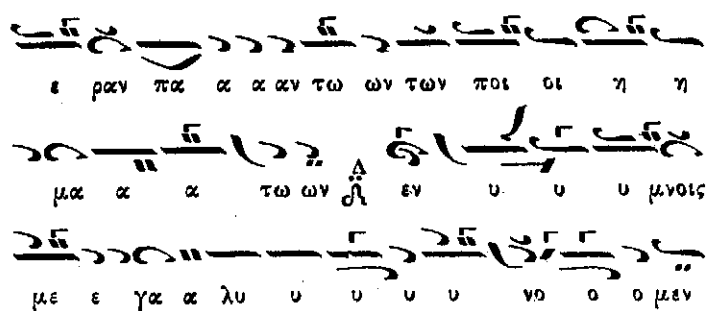 ε ραν πα α α αν τω ων των ποι οι η η
μα α α τω ων Δ εν υ υ υ μνοις
με ε γα α λυ υ υ υ υ νο ο ο μεν